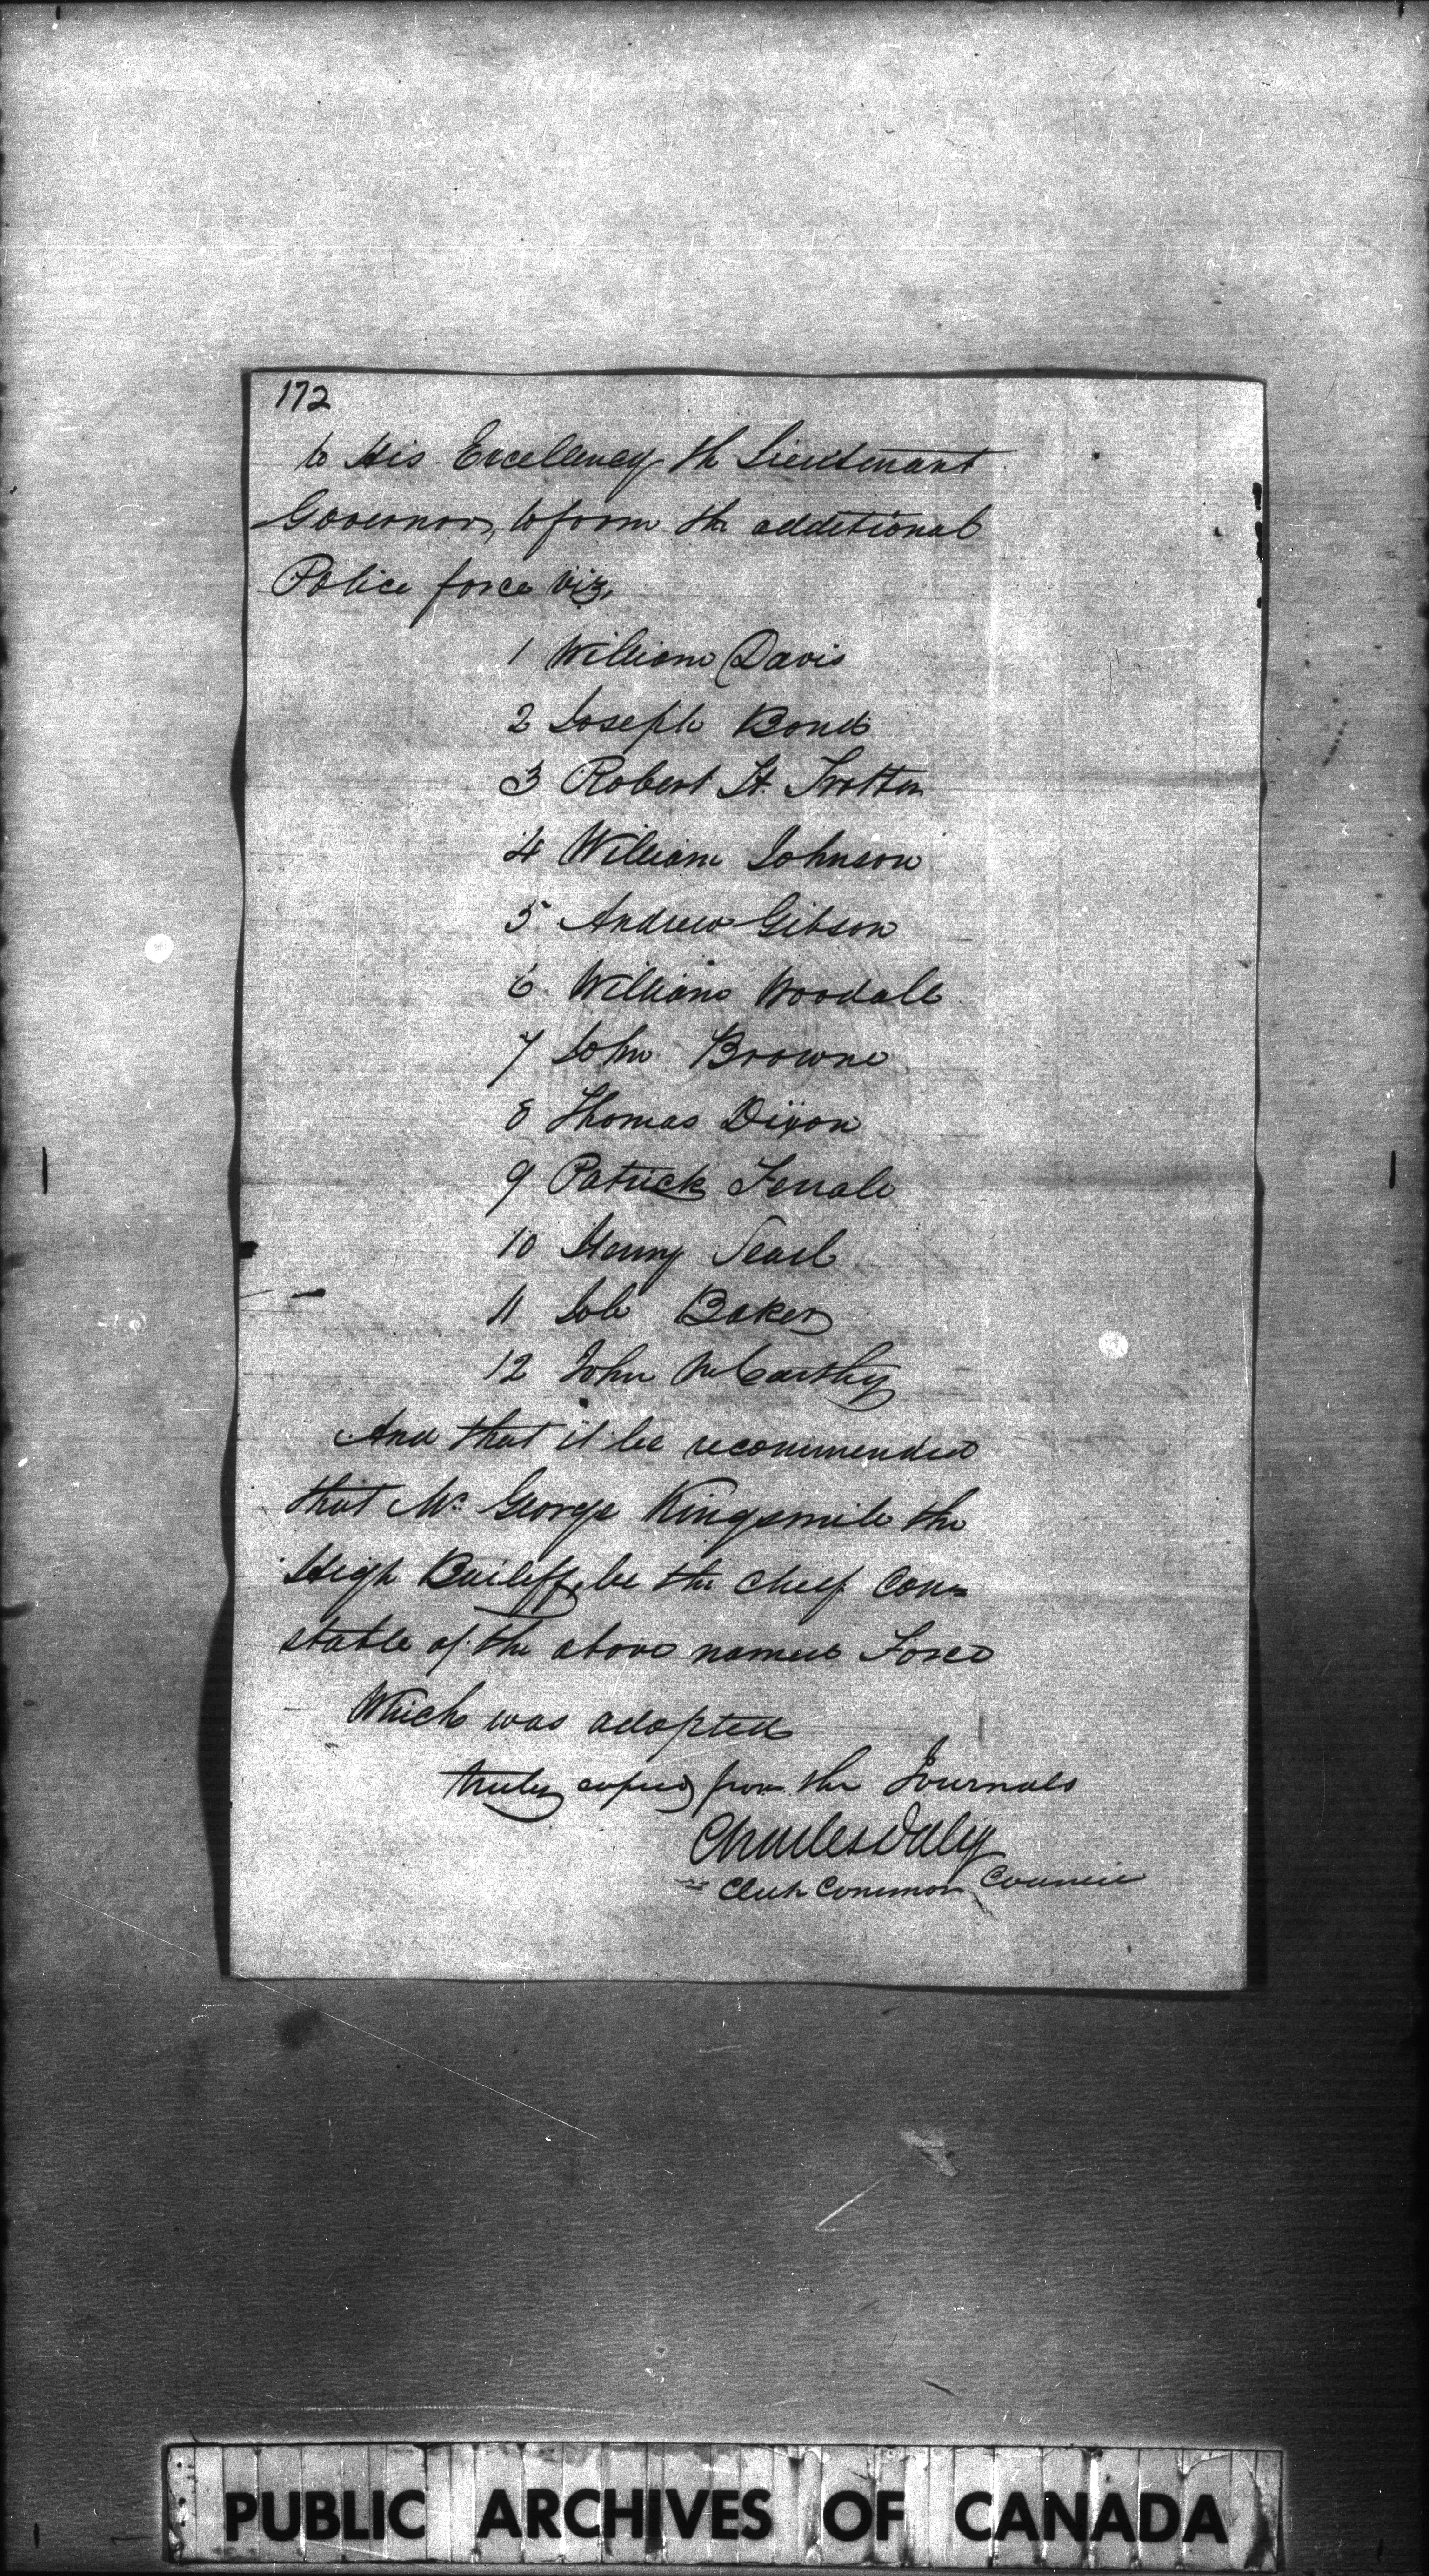 172
to His Excellency the Lieutenant
Governor, to form the additional
Police force viz,
1 William Davis
2 Joseph Bond
3 Robert H. Trotter
4 William Johnson
5 Andrew Gibson
6 William Woodall
7 John Browne
8 Thomas Dixon
9 Patrick
10 Henry Searl
11 Job Baker
12 John McCarthy
And that it be recommended
that Mr. George Kingsmill the
High Bailiff, be the chief Con=
stable of the above named Force
Which was adopted
truly copied from the Journals
Charles Daly
Clerk Common Council
PUBLIC ARCHIVES OF CANADA